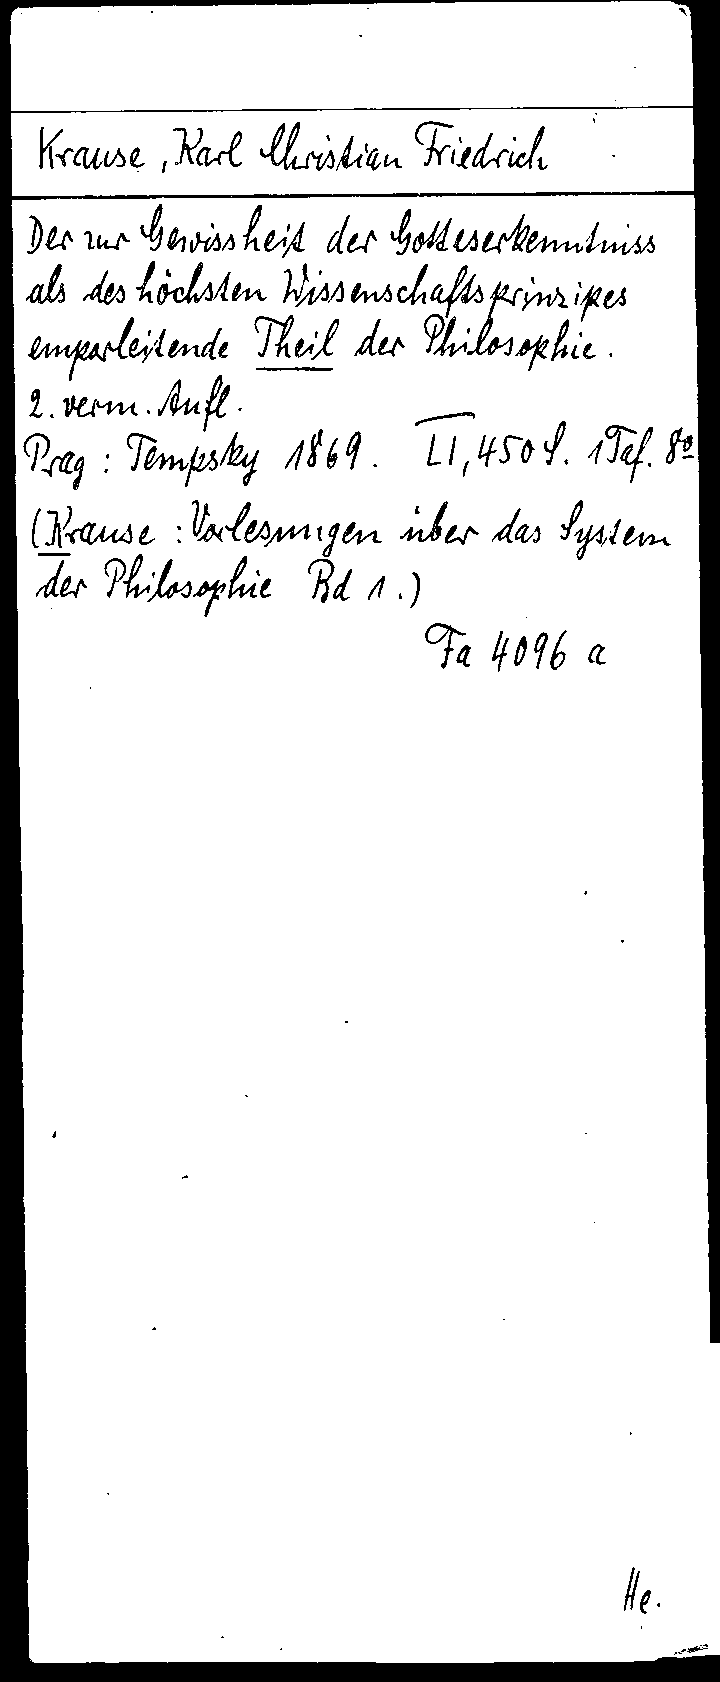 Krause, Karl Christian Friedrich
Der zur Gewissheit der Gotteserkenntniss
als des höchsten Wissenschaftsprinzipes
emporleitende Theil der Philosophie.
2. verm. Aufl.
Prag : Tempsky 1869. LI, 450 S. 1 Taf. 8º
(Krause : Vorlesungen über das System
der Philosophie Bd 1.)
Fa 4096 a
He.